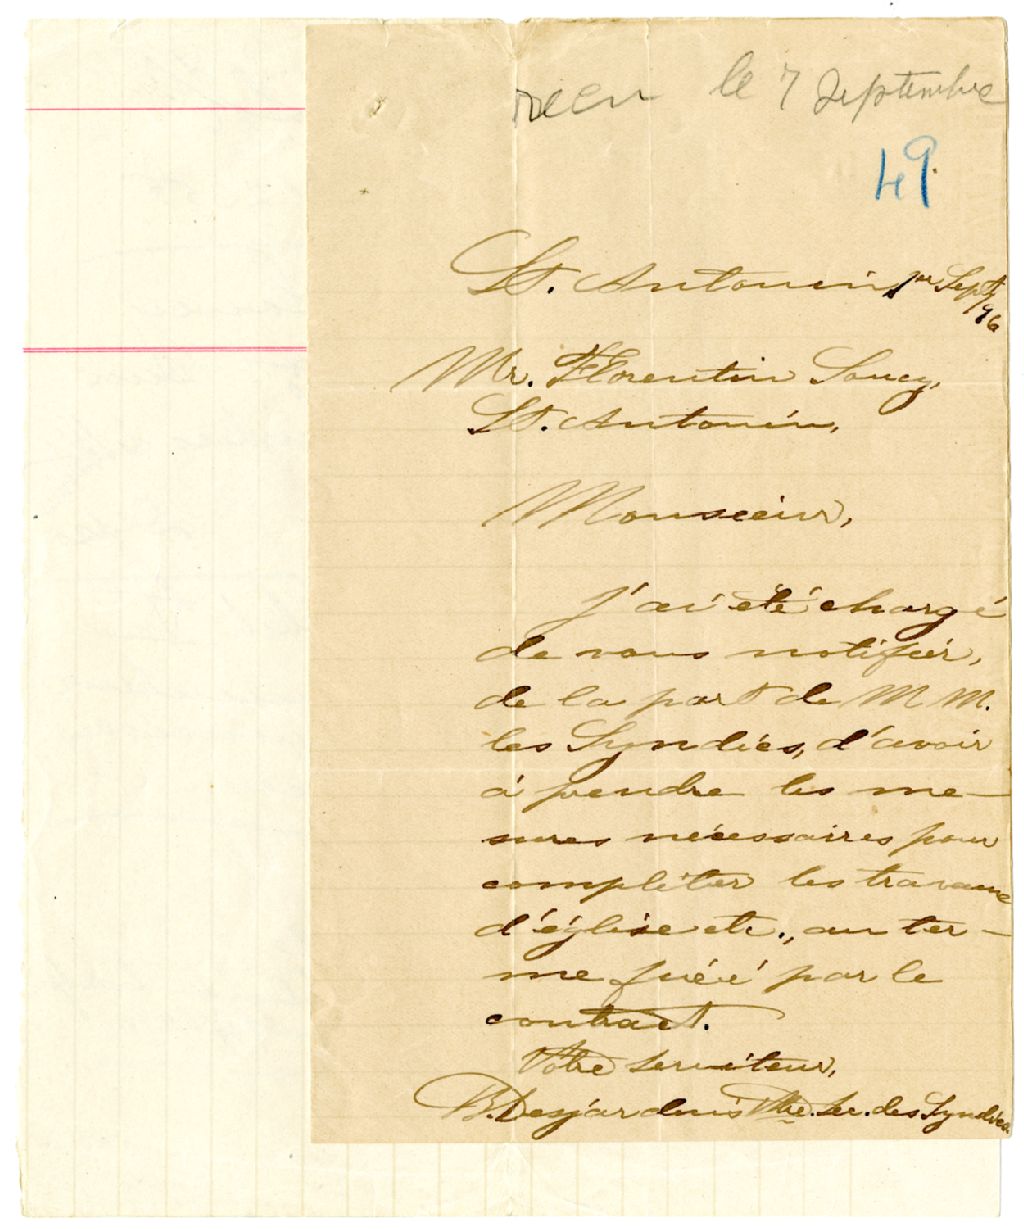 recu le 7 Septembre
49.
St. Antonin, 1er Sept
/96
Mr. Florentin Soucy,
St. Antonin,
Monseeiur,
J'ai été chargé
de vous notifier,
de la part de M M.
les Syndics, d'avoir
à prendre les me-
sures nécessaires pour
compléter les travaux
d'église etc., au ter-
me fixé par le
contract.
Votre serviteur,
B. Desjardins Ptre. Sec. des Syndics